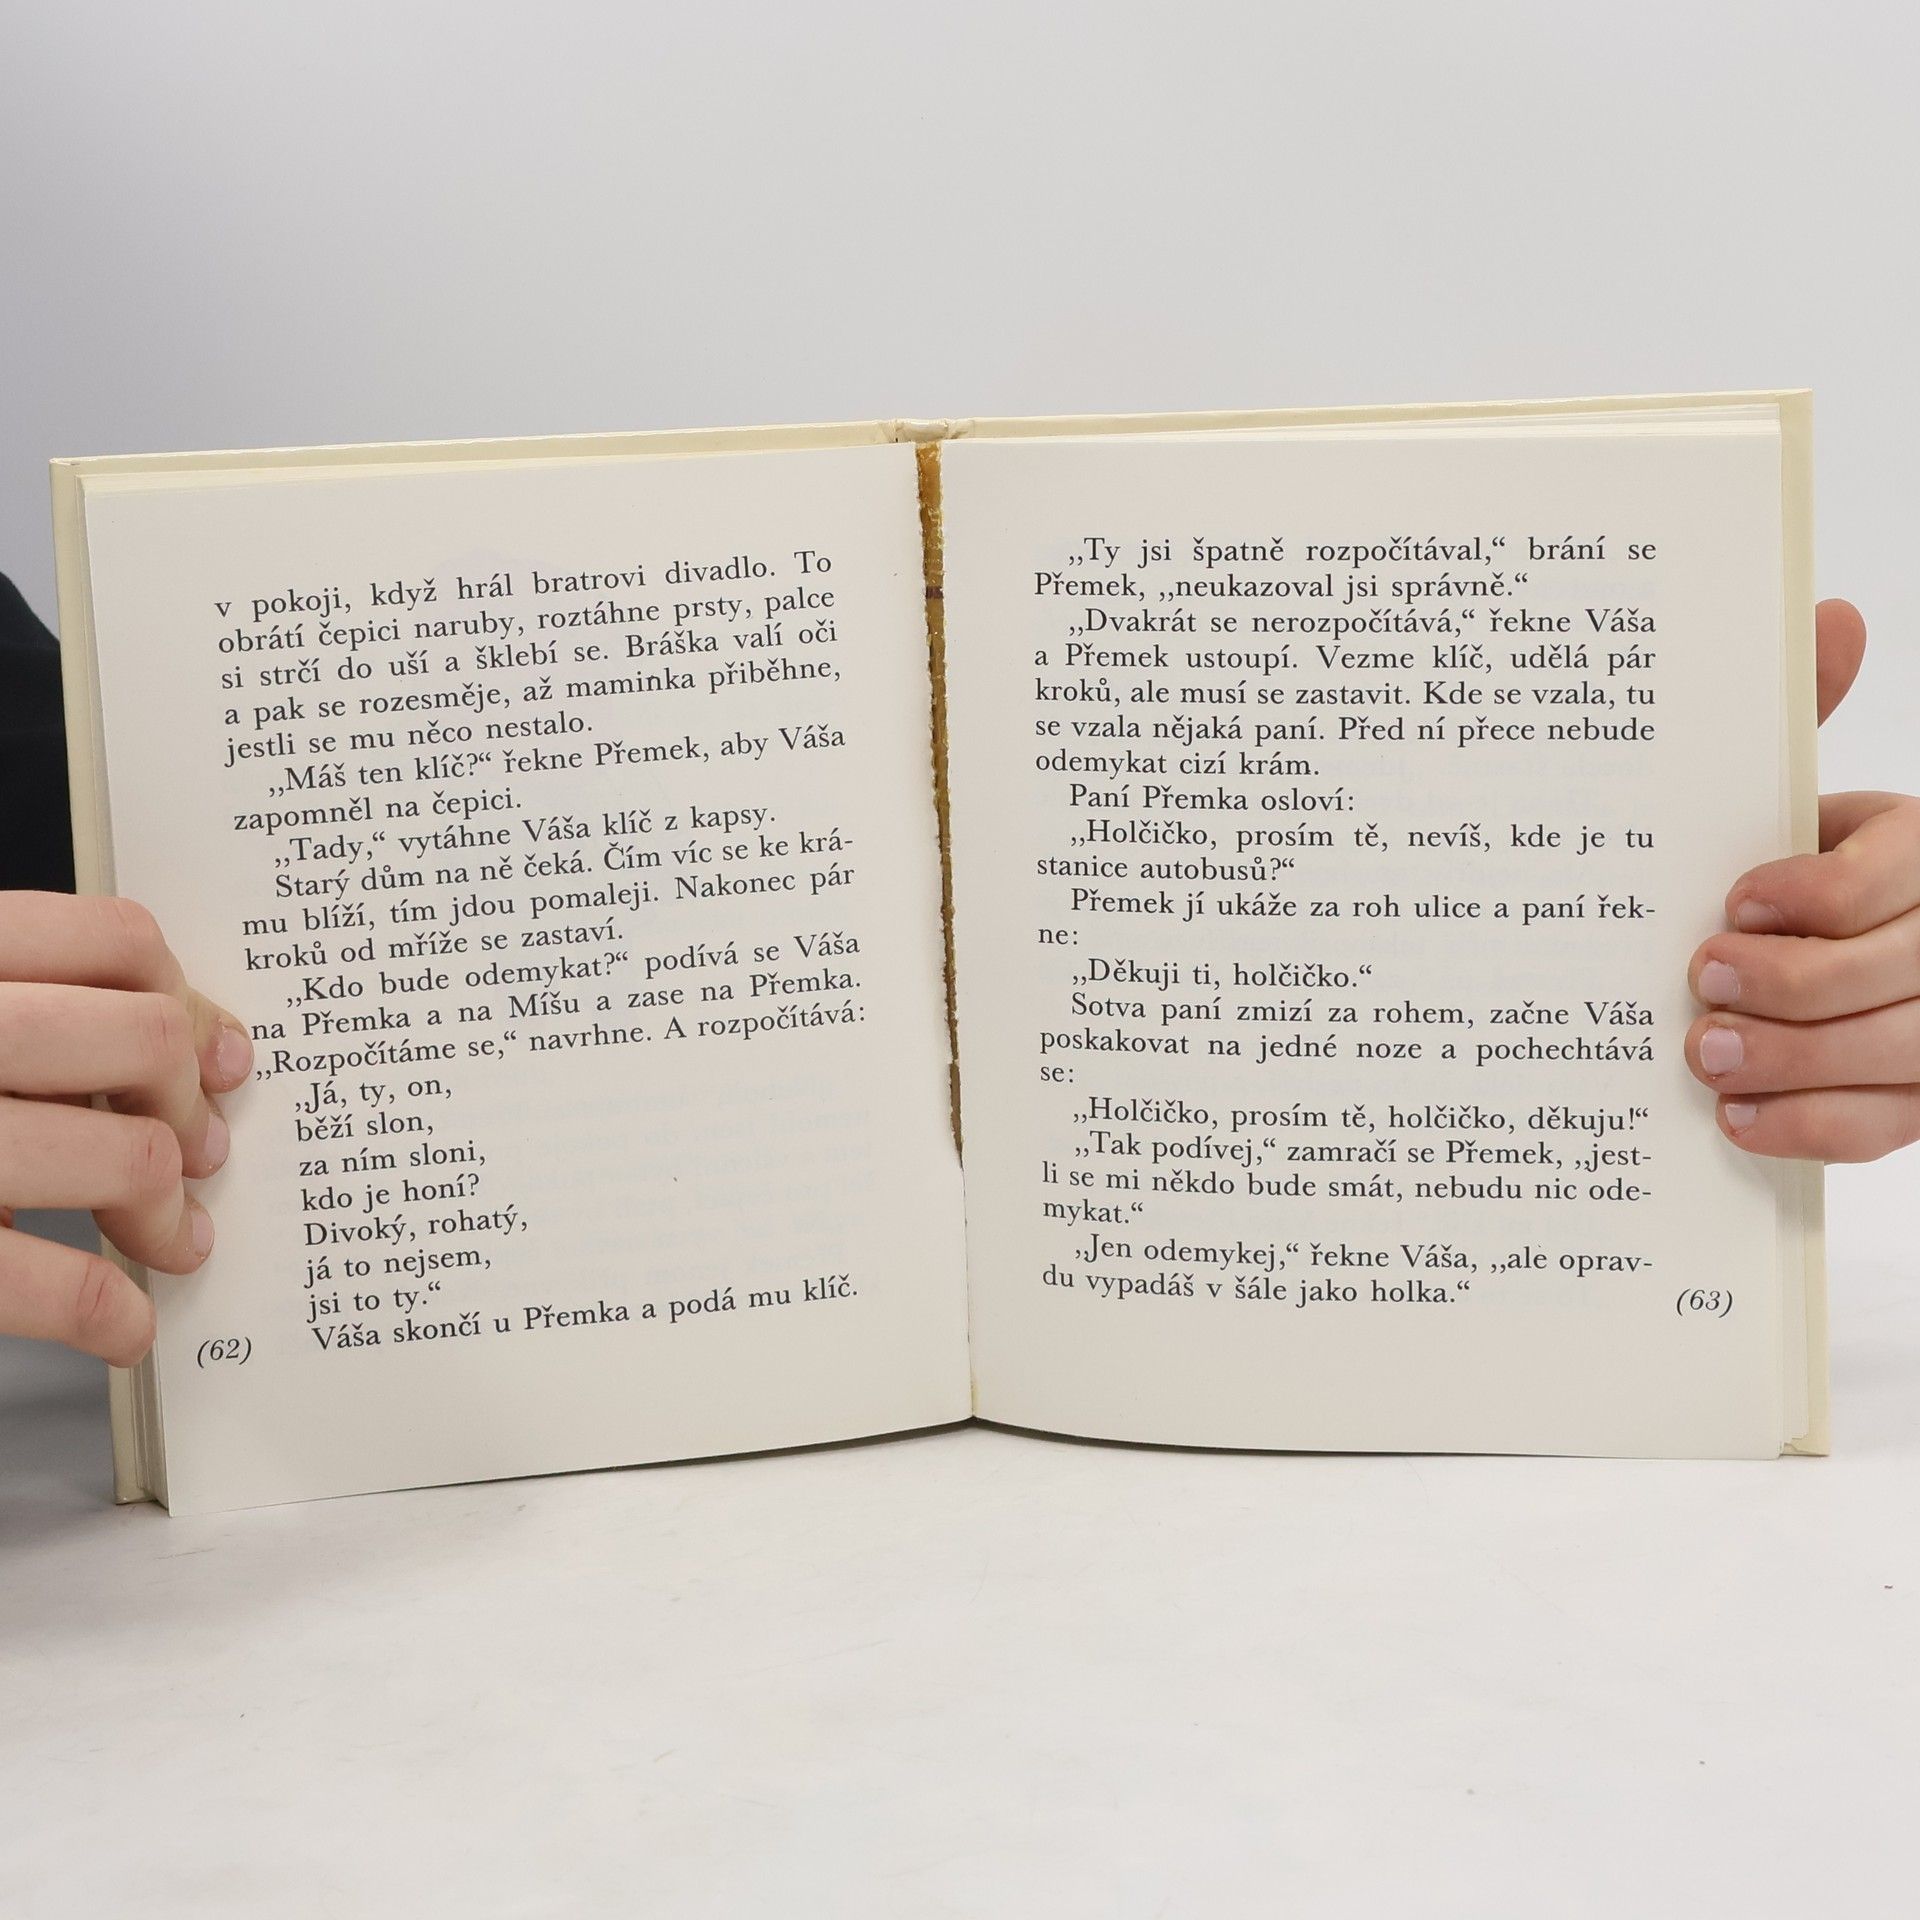 v pokoji, když hrál bratrovi divadlo. To
obrátí čepici naruby, roztáhne prsty, palce
si strčí do uší a šklebí se. Bráška valí oči
a pak se rozesměje, až maminka přiběhne,
jestli se mu něco nestalo.
,,Máš ten klíč?“ řekne Přemek, aby Váša
zapomněl na čepici.
,,Tady,“ vytáhne Váša klíč z kapsy.
Starý dům na ně čeká. Čím víc se ke krá-
mu blíží, tím jdou pomaleji. Nakonec pár
kroků od mříže se zastaví.
,,Kdo bude odemykat?“ podívá se Váša
na Přemka a na Míšu a zase na Přemka.
,,Rozpočítáme se,“ navrhne. A rozpočítává:
,,Já, ty, on,
běží slon,
za ním sloni,
kdo je honí?
Divoký, rohatý,
já to nejsem,
jsi to ty.“
Váša skončí u Přemka a podá mu klíč.
(62)
,,Ty jsi špatně rozpočítával,“ brání se
Přemek, ,,neukazoval jsi správně.“
,,Dvakrát se nerozpočítává,“ řekne Váša
a Přemek ustoupí. Vezme klíč, udělá pár
kroků, ale musí se zastavit. Kde se vzala, tu
se vzala nějaká paní. Před ní přece nebude
odemykat cizí krám.
Paní Přemka osloví:
,,Holčičko, prosím tě, nevíš, kde je tu
stanice autobusů?“
Přemek jí ukáže za roh ulice a paní řek-
ne:
,,Děkuji ti, holčičko.“
Sotva paní zmizí za rohem, začne Váša
poskakovat na jedné noze a pochechtává
se:
,,Holčičko, prosím tě, holčičko, děkuju!“
,,Tak podívej,“ zamračí se Přemek, ,,jest-
li se mi někdo bude smát, nebudu nic ode-
mykat.“
,,Jen odemykej,“ řekne Váša, ,,ale oprav-
du vypadáš v šále jako holka.“
(63)